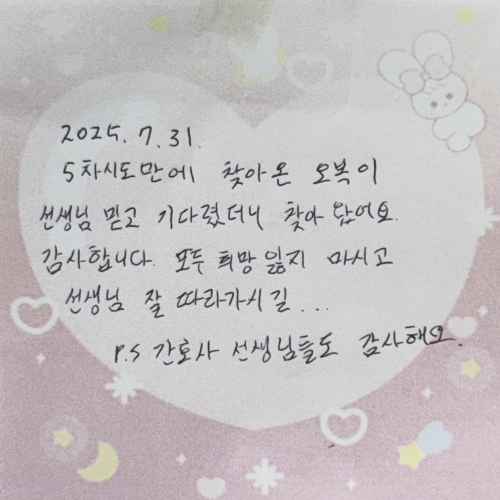 2025. 7. 31.
5차시도만에 찾아온 오복이
선생님 믿고 기다렸더니 찾아 왔어요.
감사합니다. 모두 희망 잃지 마시고
선생님 잘 따라가시길...
P.S 간호사 선생님들도 감사해요.